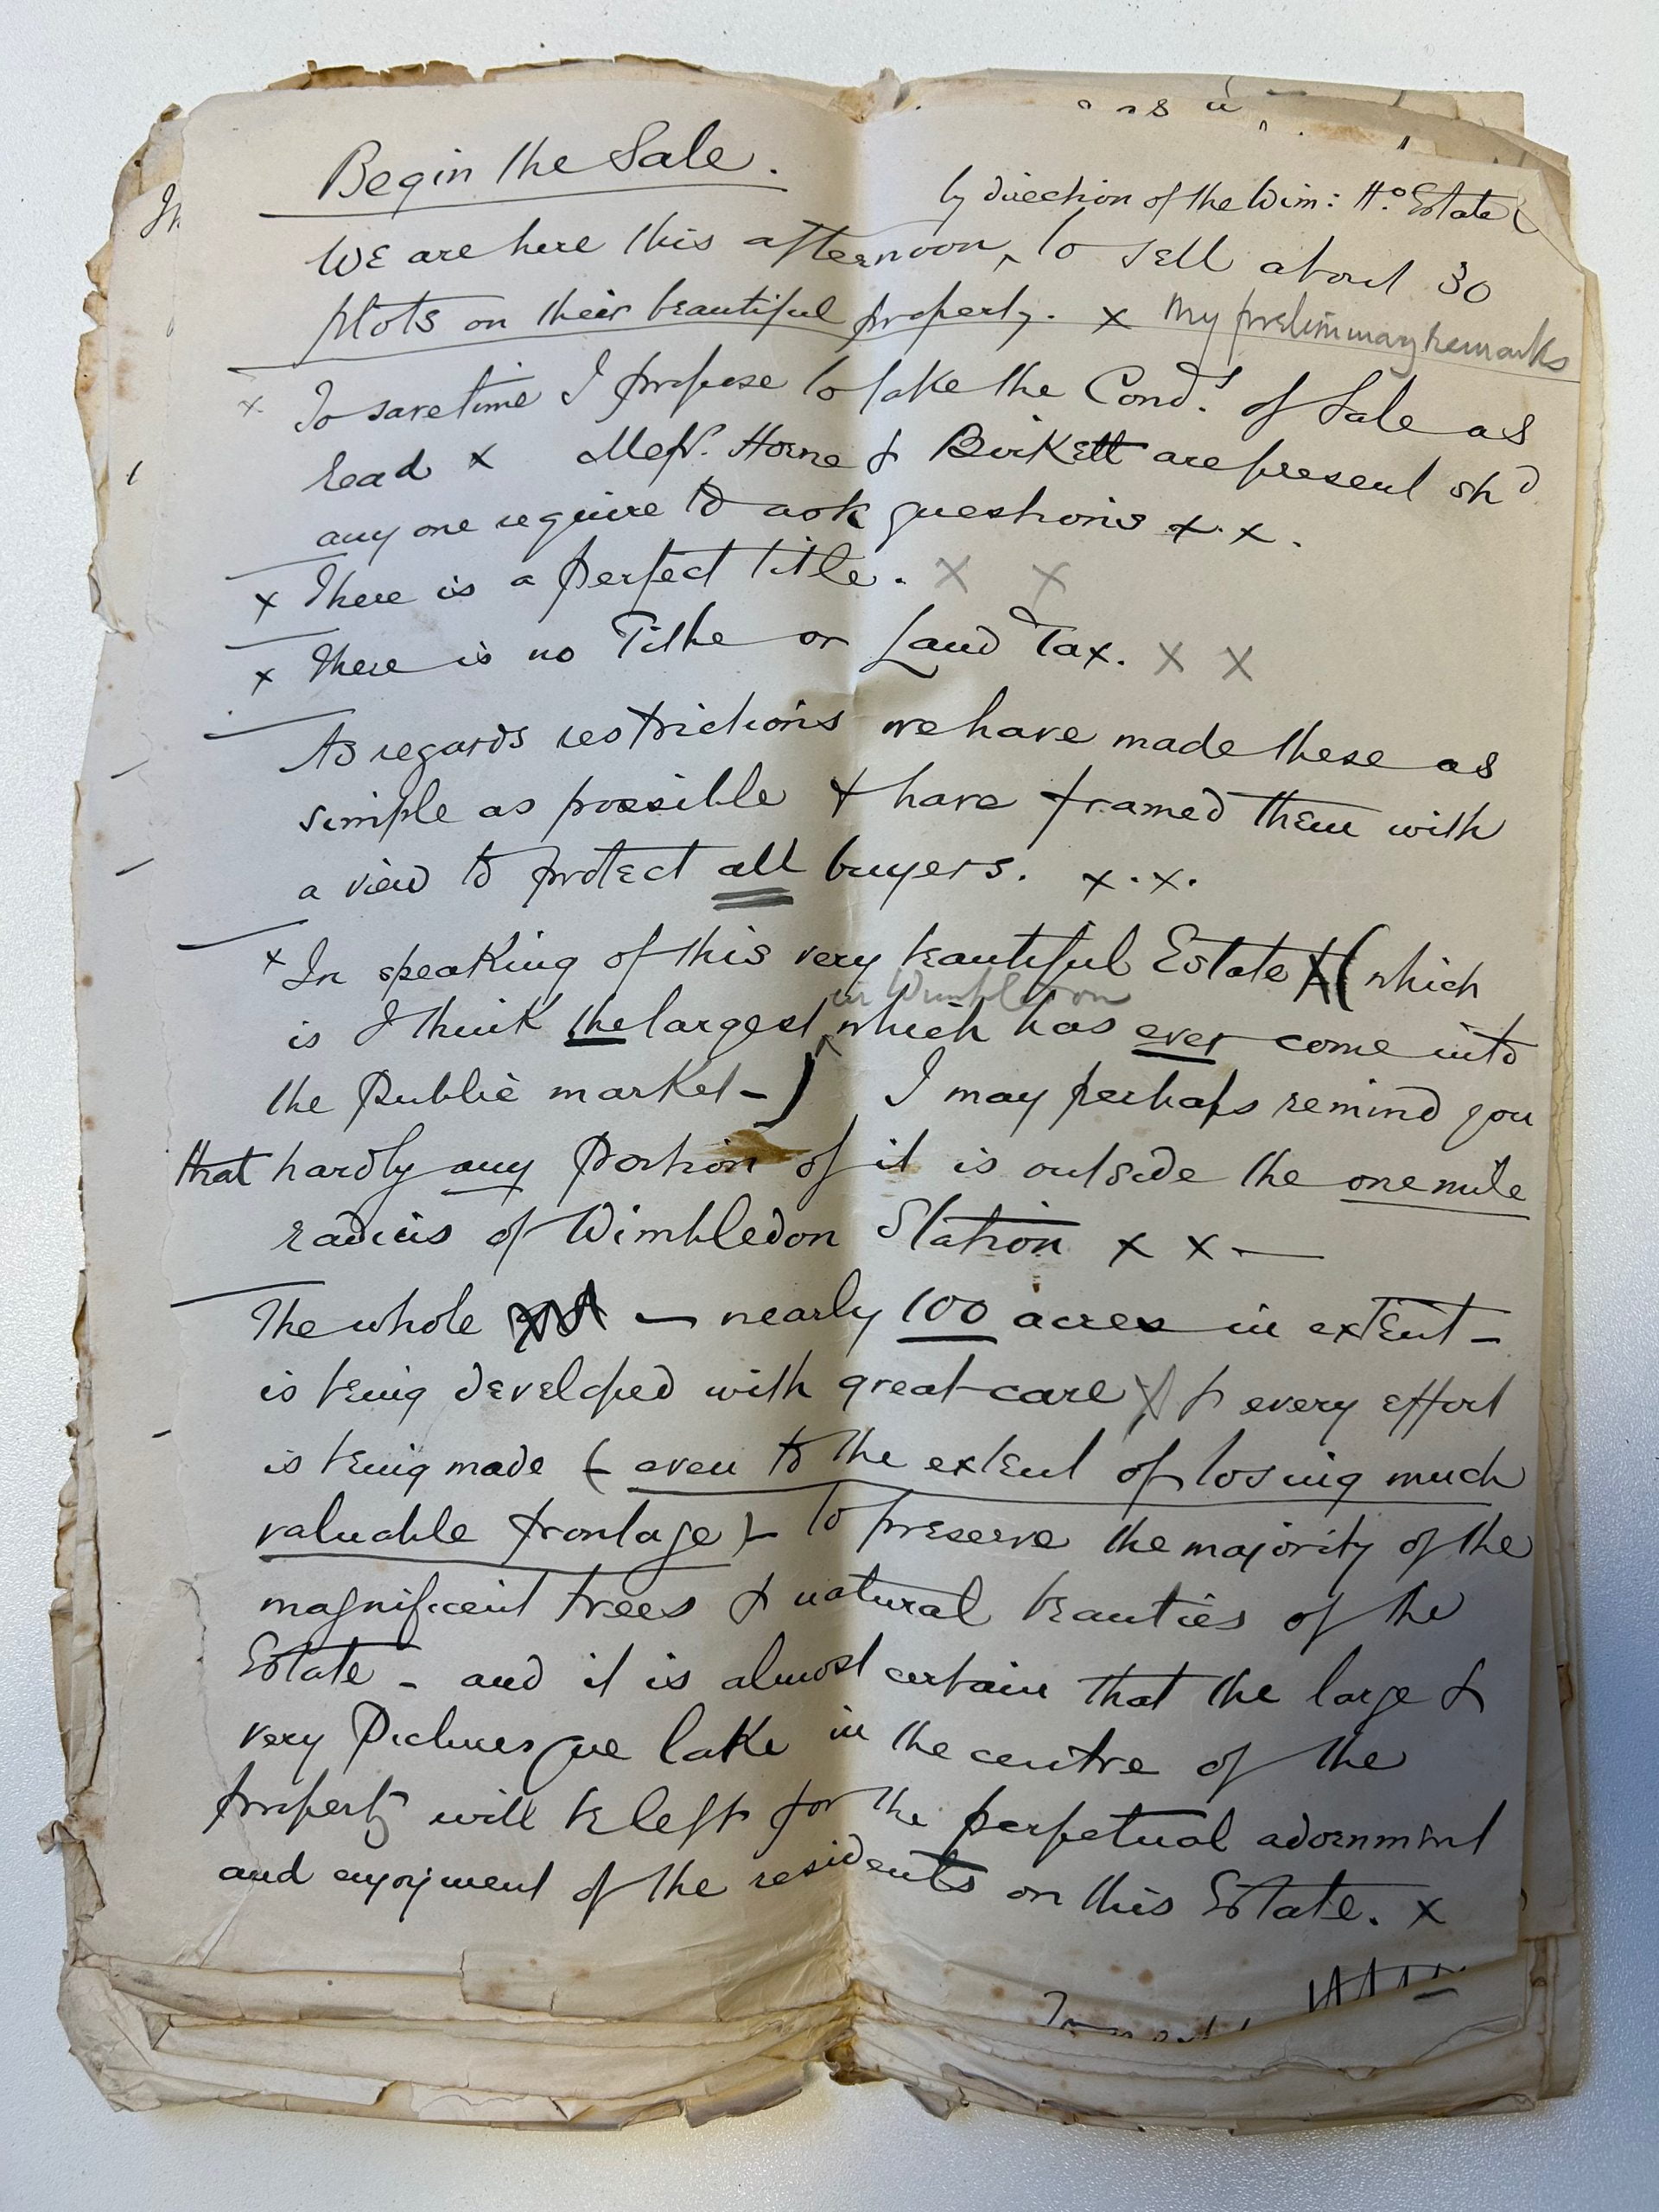 Begin the Sale.
by direction of the Wim: Ho. Estate
We are here this afternoon, to sell about 30
plots on their beautiful property. x My preliminary remarks
x To save time I propose to take the Conds. of Sale as
read x Messrs. Horne & Birkett are present shd
any one require to ask questions x x.
x There is a perfect title. x x
x There is no Tithe or Land Tax. x x
As regards restrictions we have made these as
simple as possible & have framed them with
a view to protect all buyers. x.x.
x In speaking of this very beautiful Estate (which
in Wimbledon
is I think the largest which has ever come into
the Public market-) I may perhaps remind you
that hardly any portion of it is outside the one mile
radius of Wimbledon Station x x -
The whole - nearly 100 acres in extent -
is being developed with great care & every effort
is being made (- even to the extent of losing much
valuable frontage)- to preserve the majority of the
magnificent trees & natural beauties of the
Estate - and it is almost certain that the large &
very Picturesque lake in the centre of the
property will be left for the perpetual adornment
and enjoyment of the residents on this Estate. x